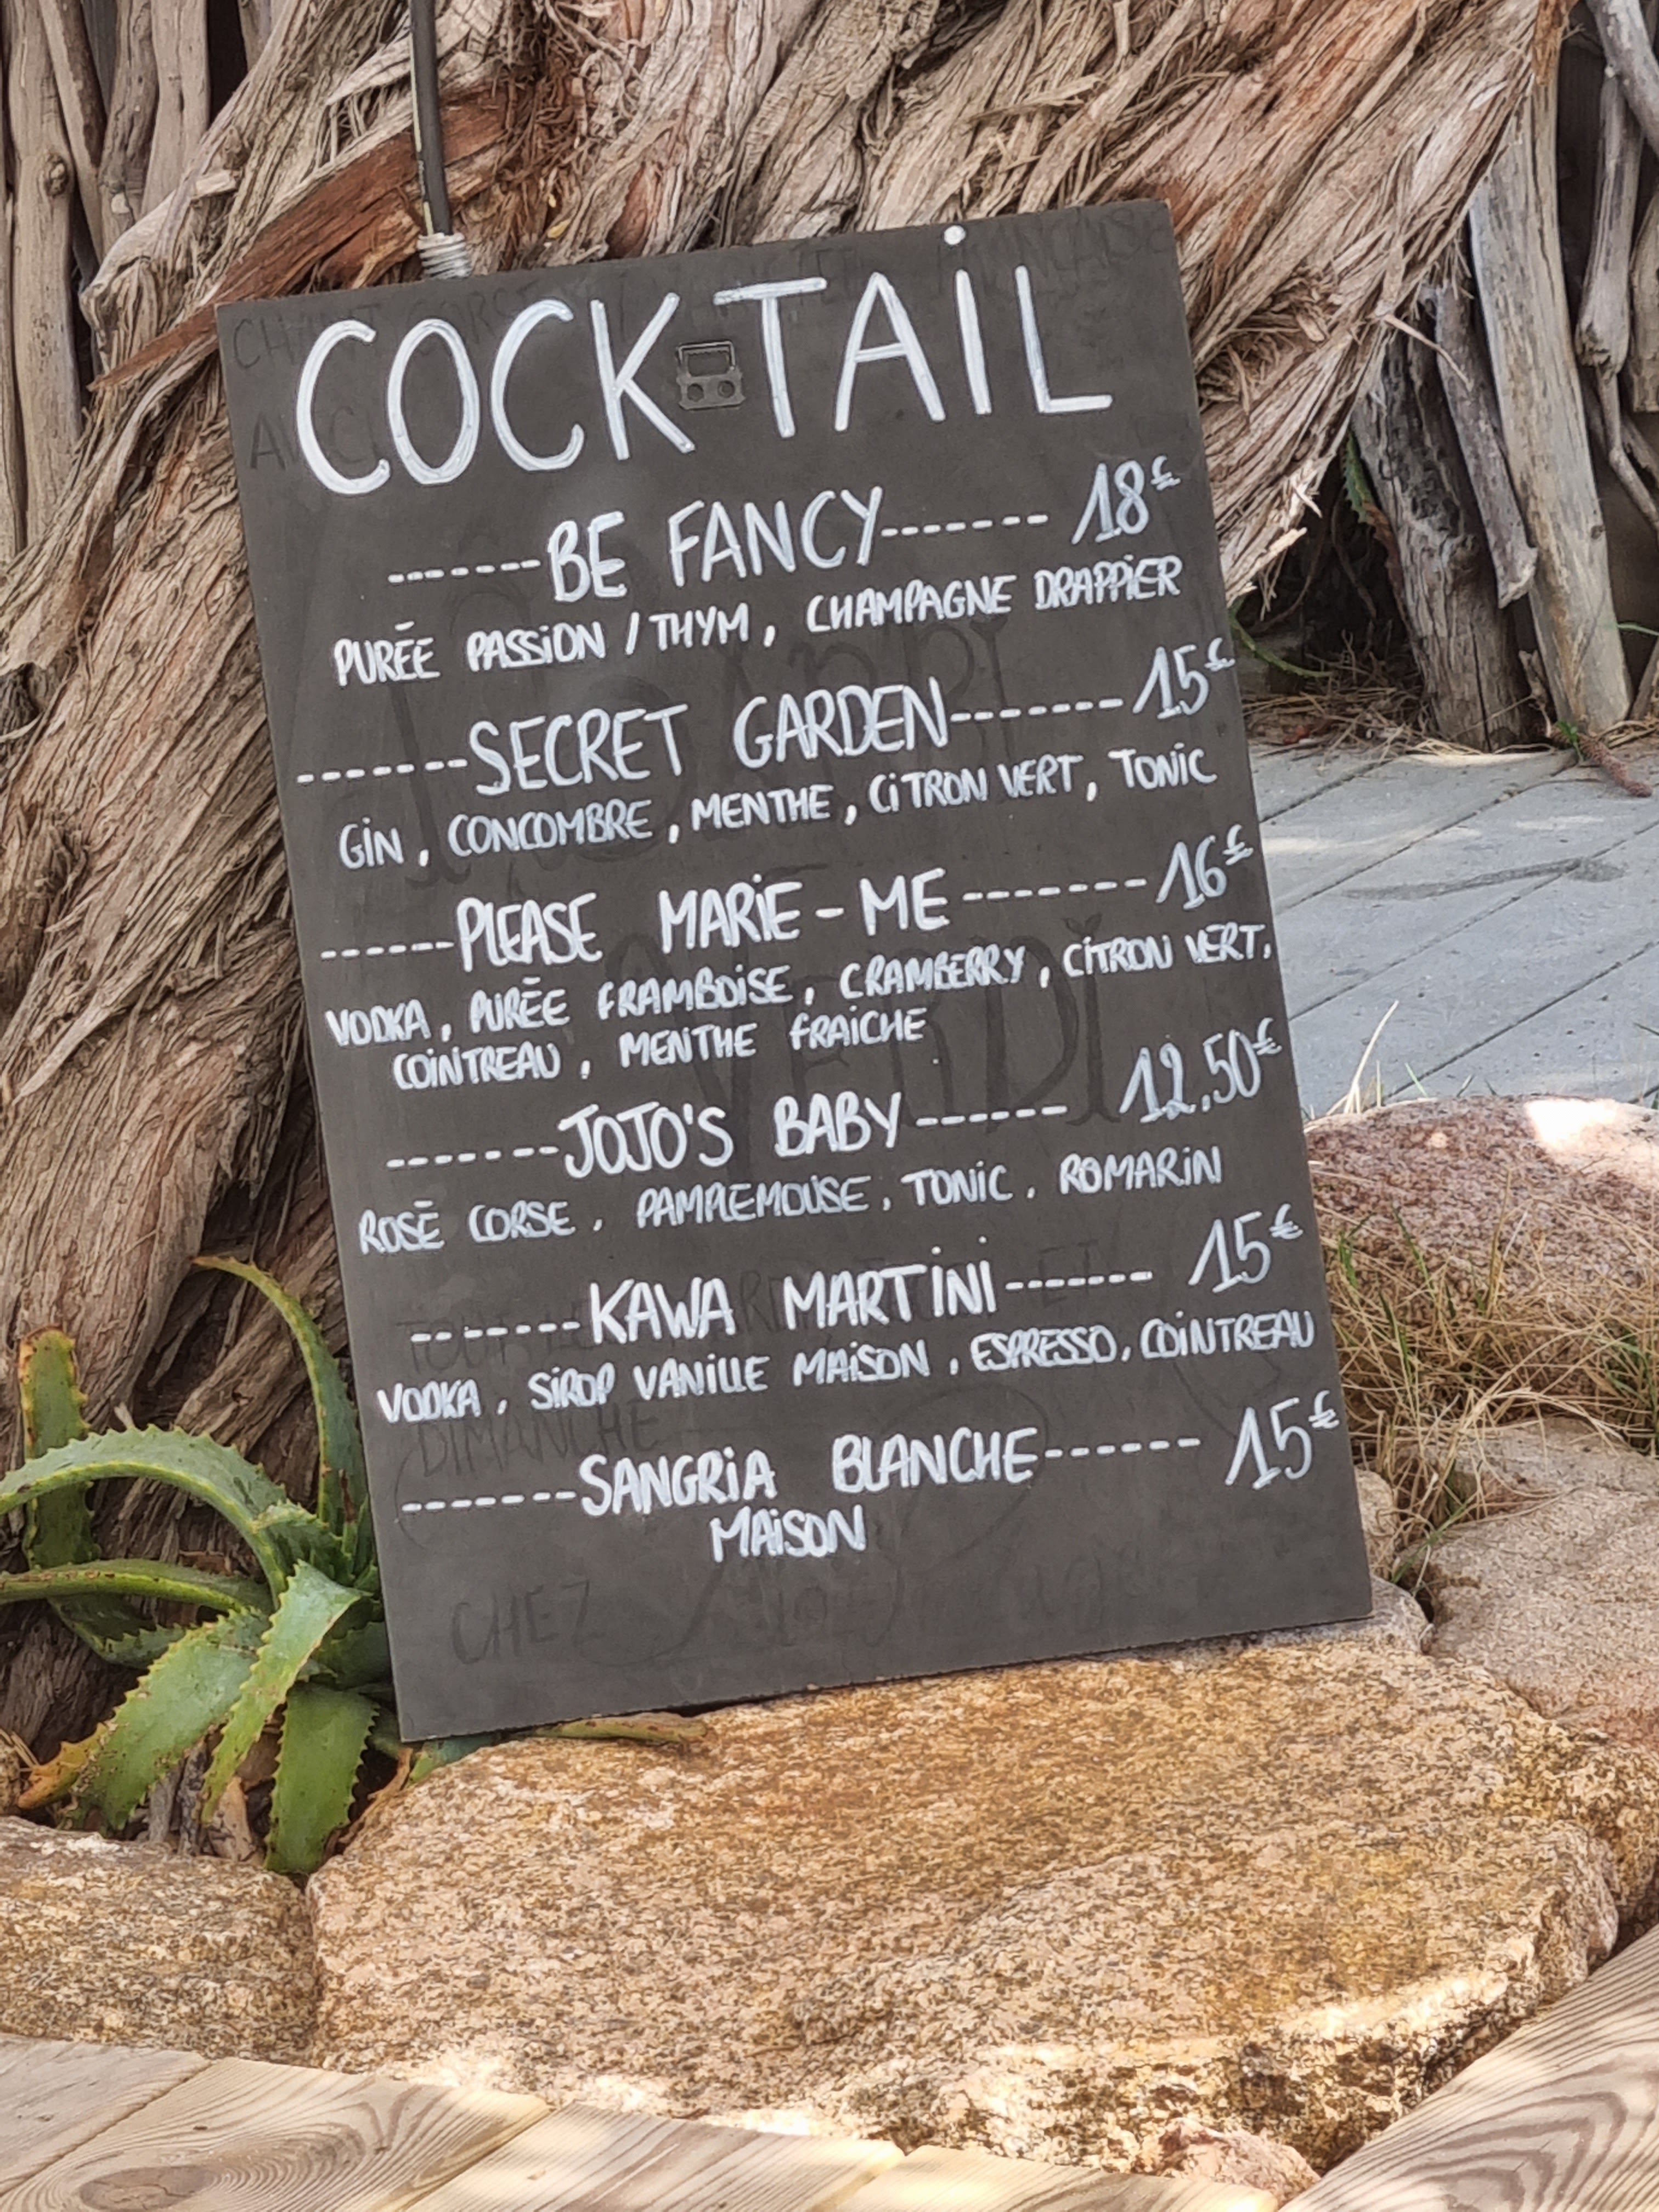 COCKTAIL
-------BE FANCY------- 18€
PURÉE PASSION / THYM, CHAMPAGNE DRAPPIER
-------SECRET GARDEN-------15€
GIN, CONCOMBRE, MENTHE, CITRON VERT, TONIC
------PLEASE MARIE-ME------- 16€
VODKA, PURÉE FRAMBOISE, CRAMBERRY, CITRON VERT,
COINTREAU, MENTHE FRAICHE
-------JOJO'S BABY------ 12.50€
ROSÉ CORSE, PAMPLEMOUSE, TONIC, ROMARIN
-------KAWA MARTINI------- 15€
VODKA, SIROP VANILLE MAISON, ESPRESSO, COINTREAU
-------SANGRIA BLANCHE------ 15€
MAISON
DIMANCHE
CHEZ